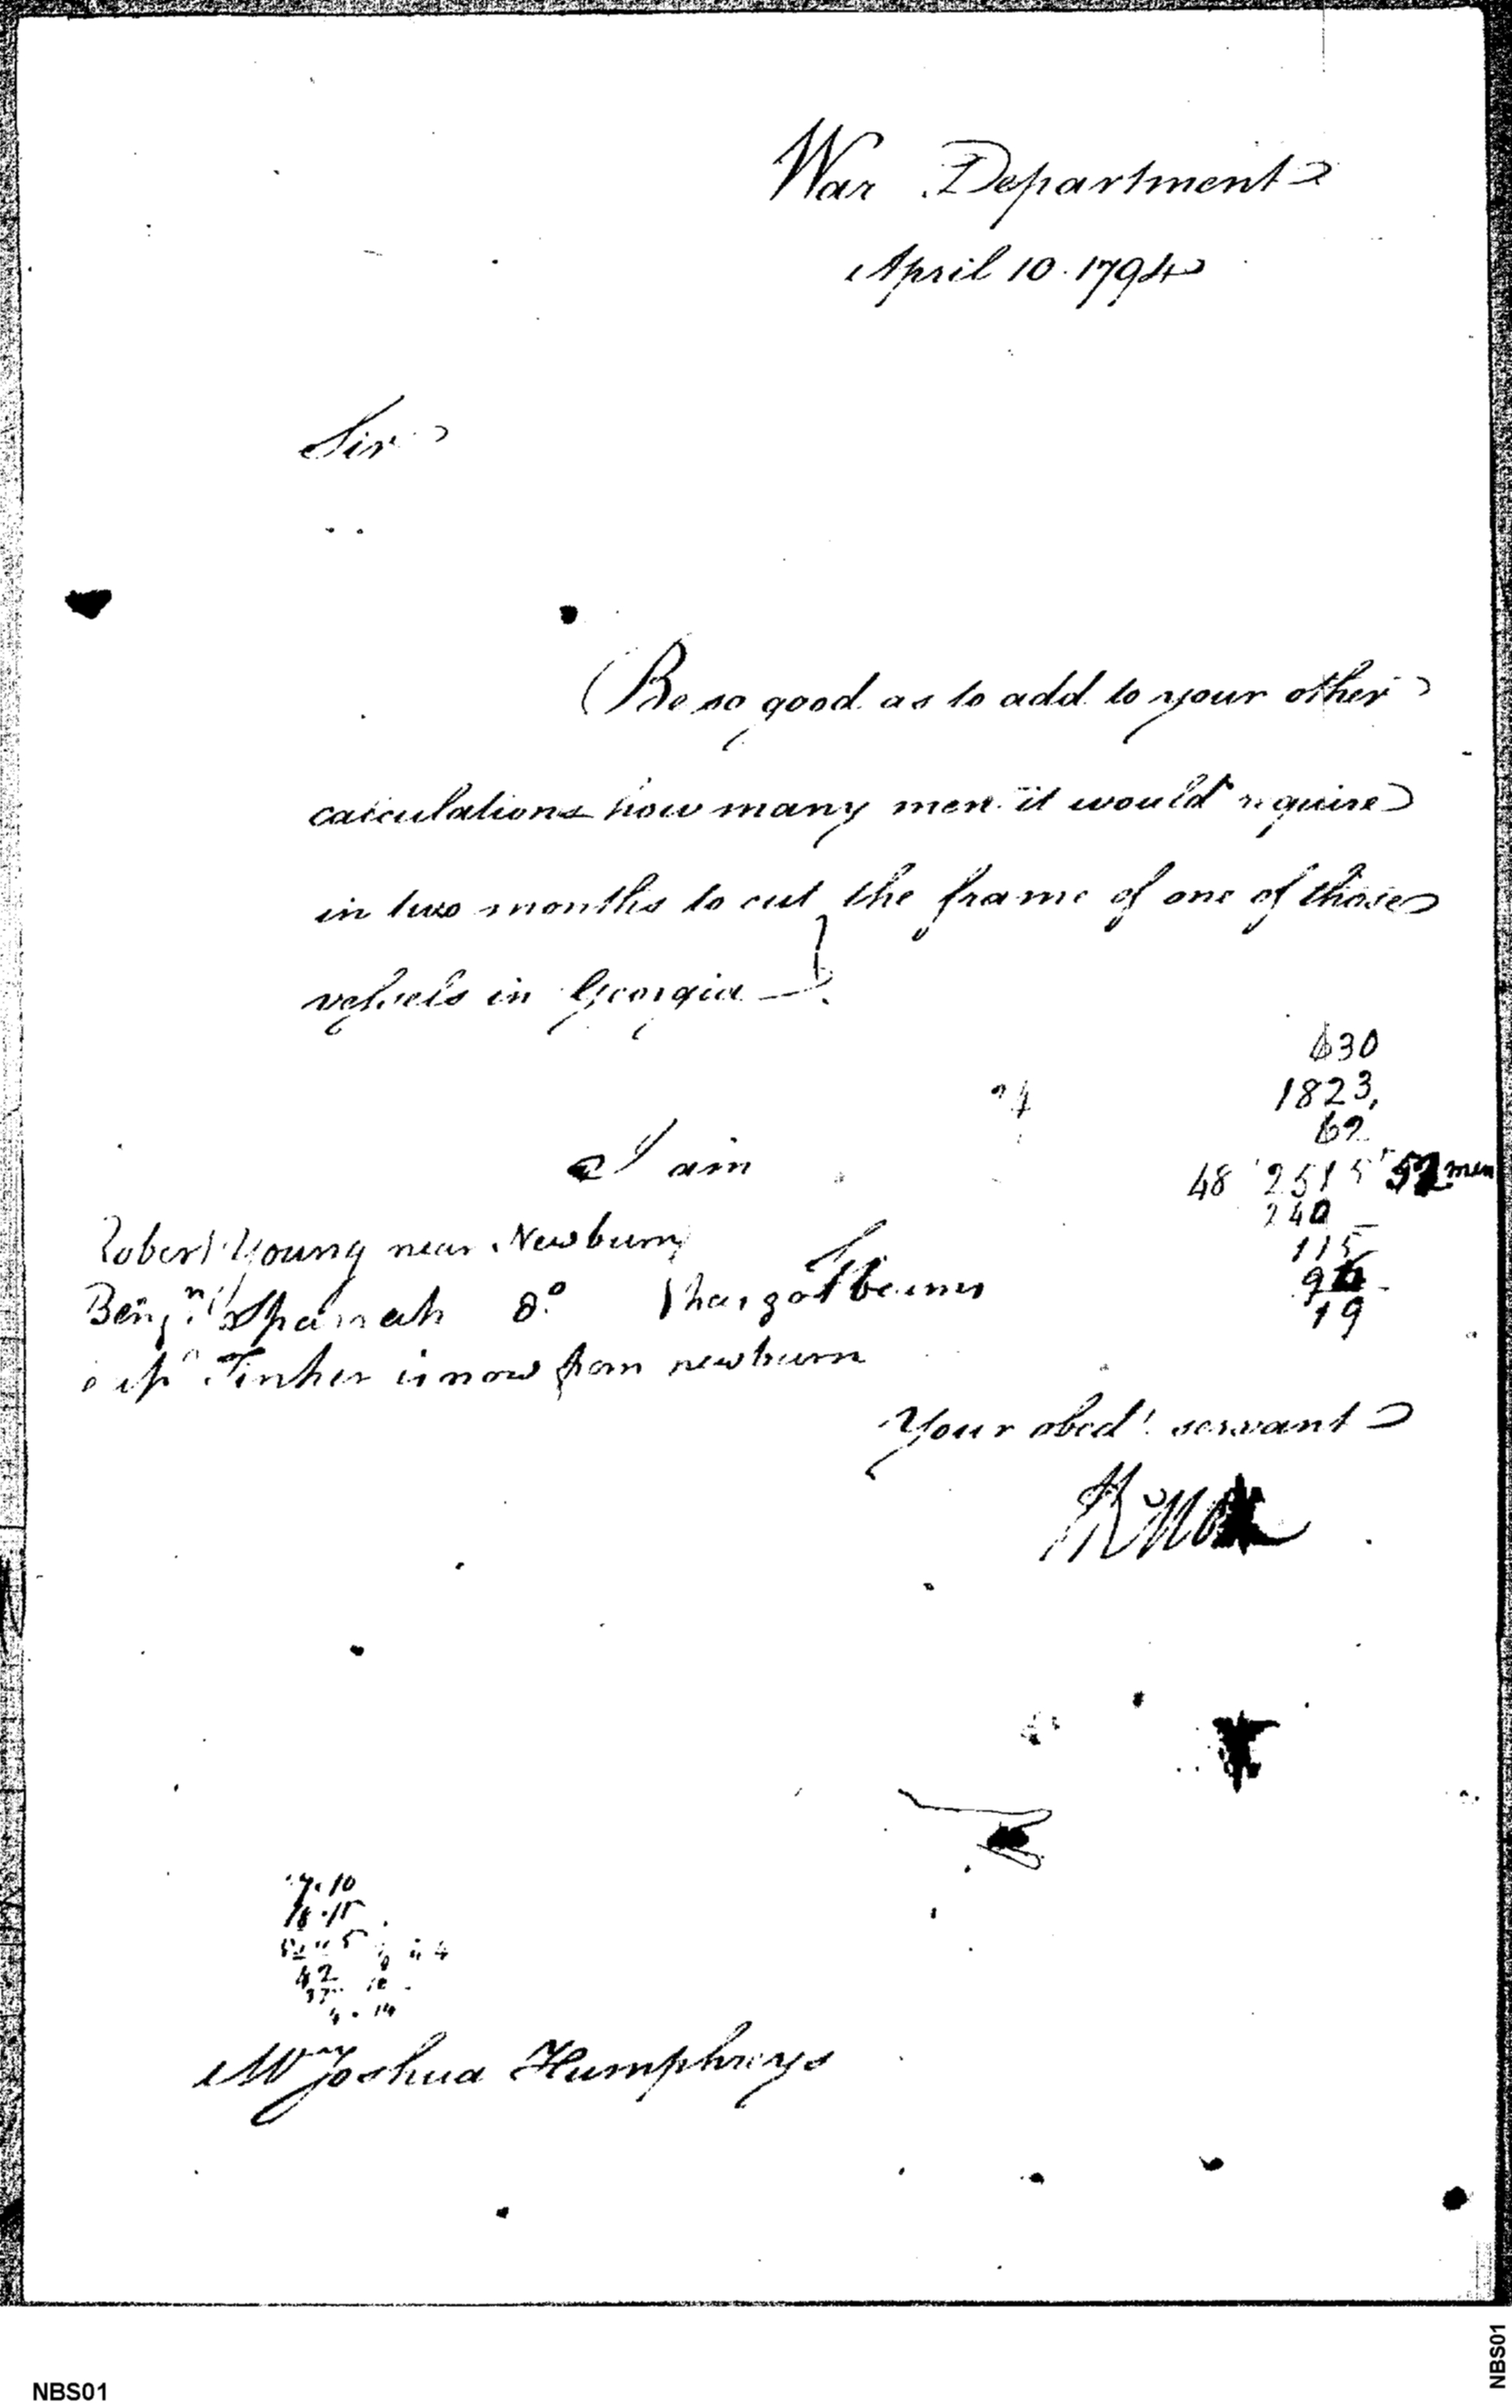 War Department
April 10. 1794
Sir
Be so good as to add to your other
calculations how many men it would require
in two months to cut the frame of one of those
vessels in Georgia
630
1823,
62
I am
48 2515 52 men
240
115
96
19
Robert Young near Newburn
Benjn Spanish Do has got beams
Capn Tinker is now from newburn
Your obedt servant
HKnox
7.10
18.15
42
4.14
Mr Joshua Humphreys
NBS01
NBS01